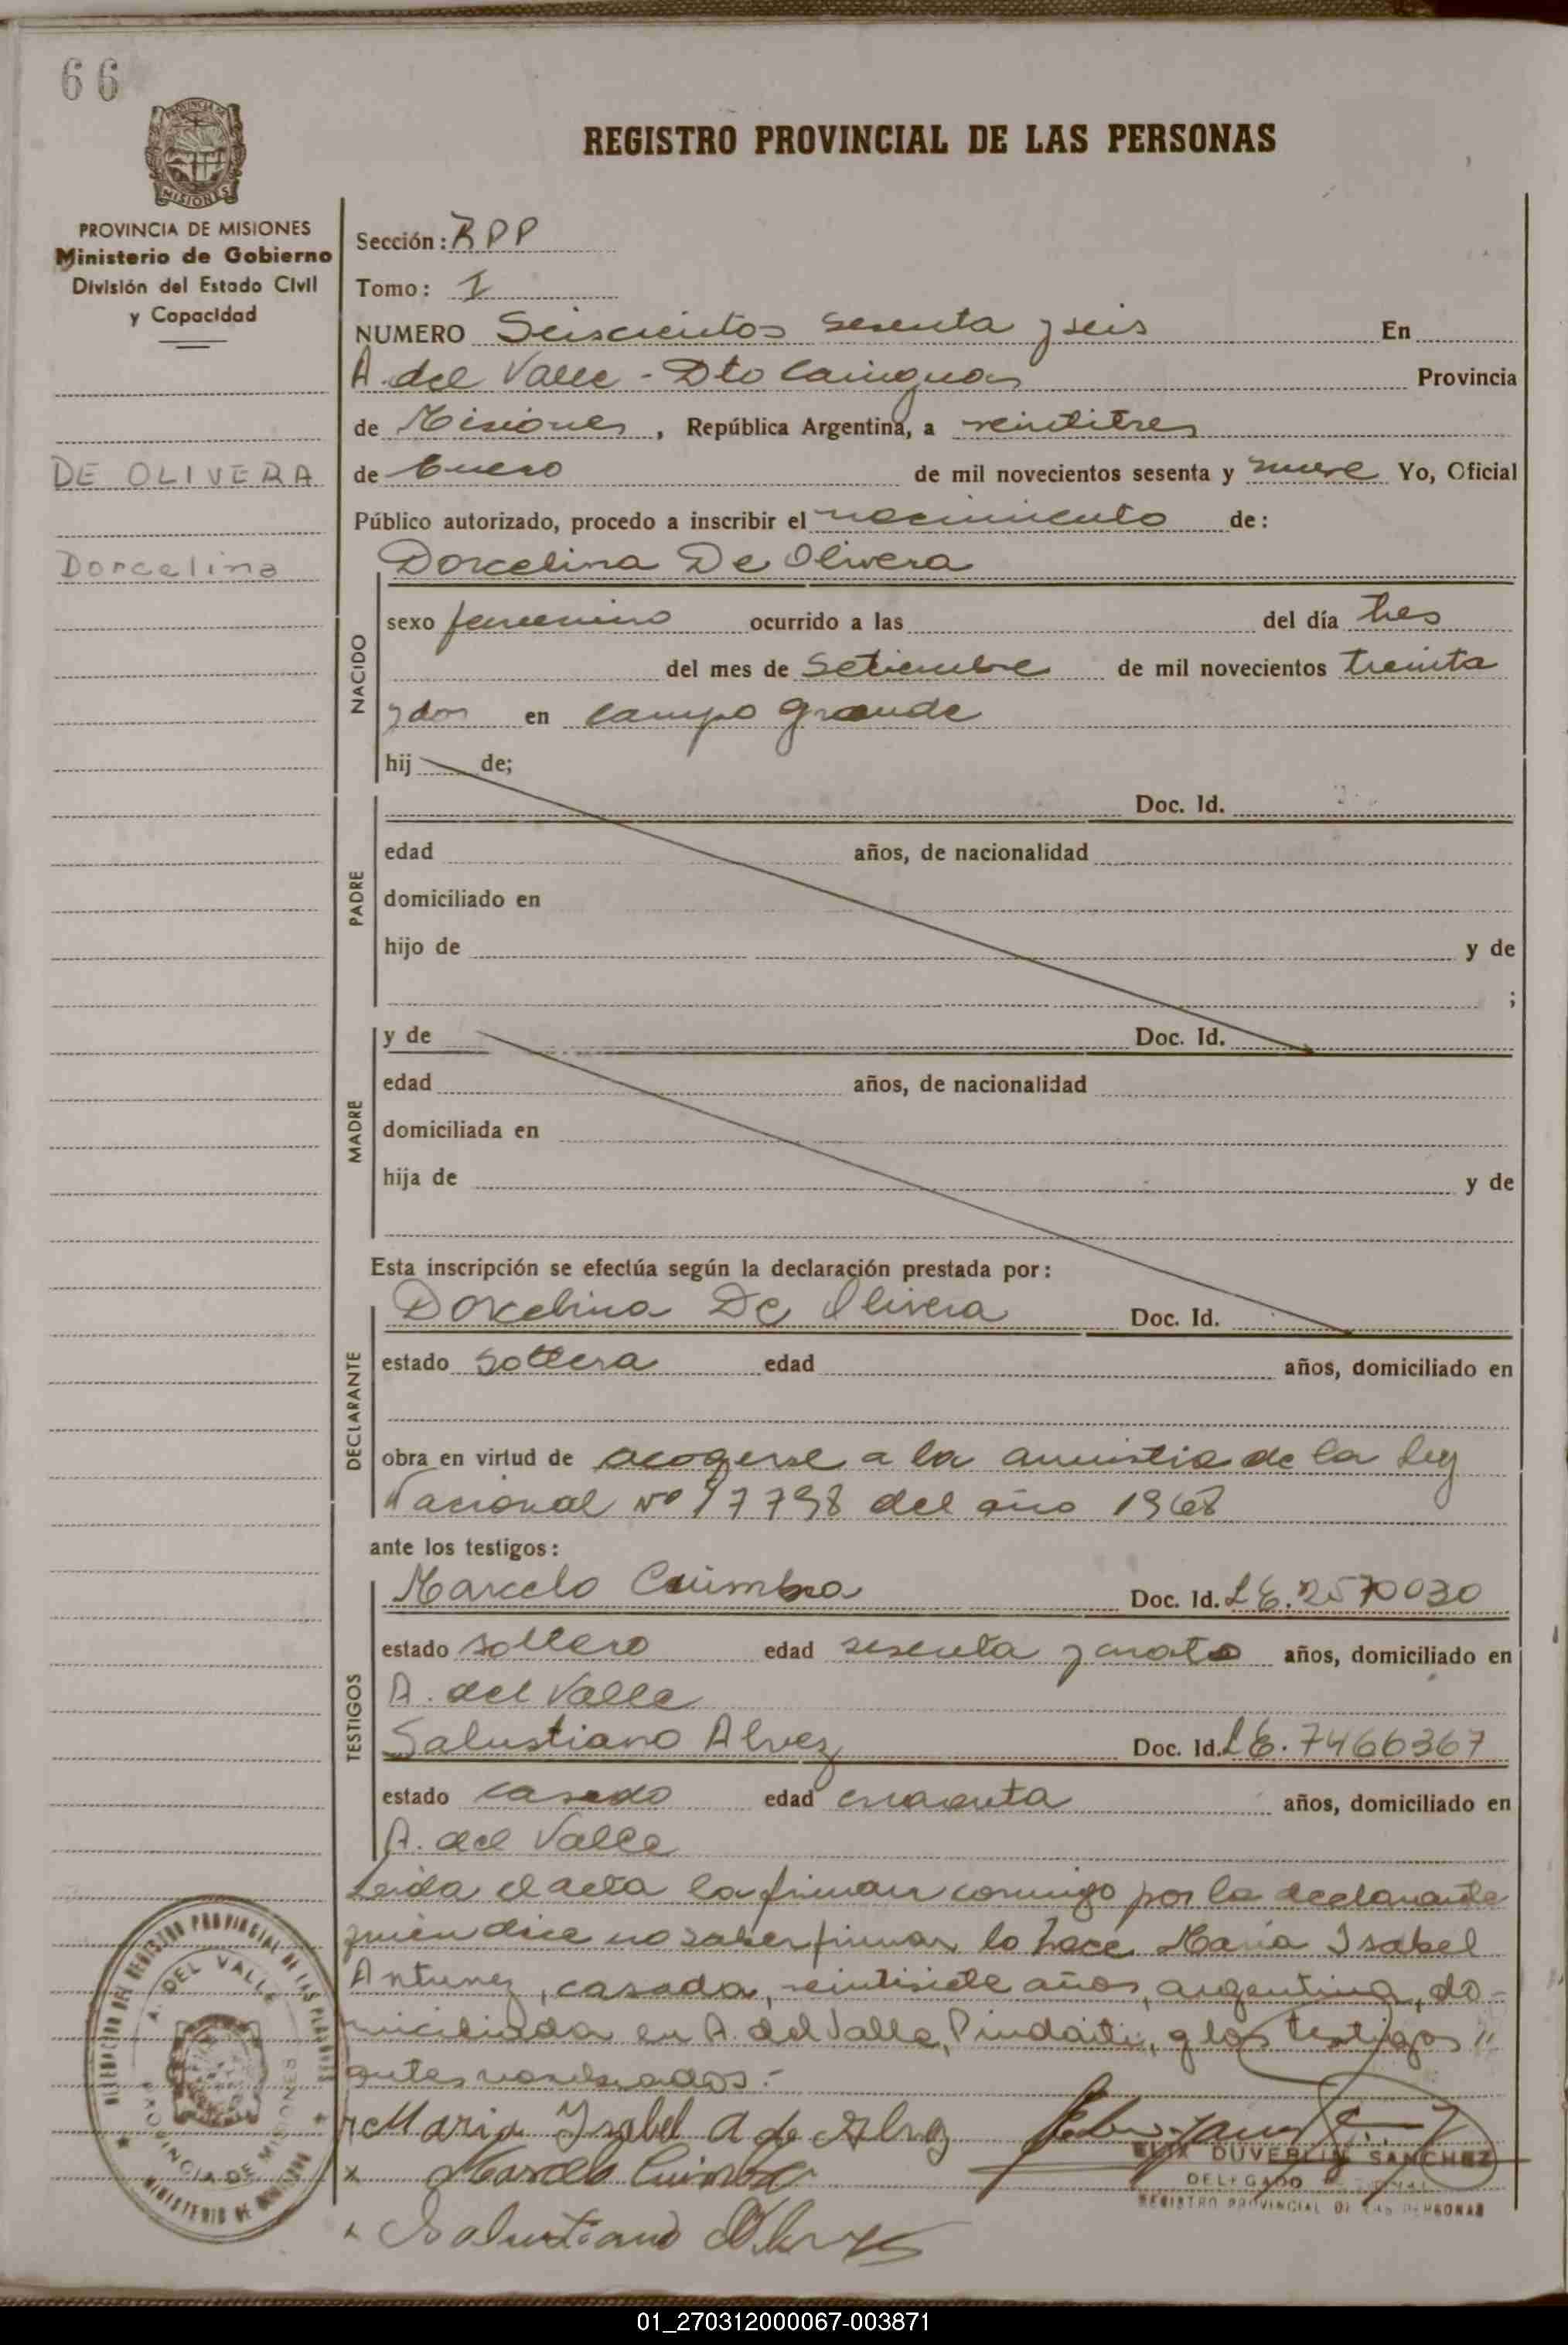 66
PROVINCIA DE
MISIONES
REGISTRO PROVINCIAL DE LAS PERSONAS
PROVINCIA DE MISIONES
Ministerio de Gobierno
División del Estado Civil
y Capacidad
DE OLIVERA
Dorcelina
Sección: RPP
Tomo: 1
NUMERO Seiscientos sesenta y seis En
A. del Valle - Dto Cainguas Provincia
de Misiones, República Argentina, a veintitres
de Enero de mil novecientos sesenta y nueve Yo, Oficial
Público autorizado, procedo a inscribir el nacimiento de:
Dorcelina De Olivera
NACIDO
sexo femenino ocurrido a las del día tres
del mes de Setiembre de mil novecientos treinta
y dos en Campo Grande
hij de;
PADRE
Doc. Id.
edad años, de nacionalidad
domiciliado en
hijo de y de
;
MADRE
y de Doc. Id.
edad años, de nacionalidad
domiciliada en
hija de y de
Esta inscripción se efectúa según la declaración prestada por:
DECLARANTE
Dorcelina De Olivera Doc. Id.
estado soltera edad años, domiciliado en
obra en virtud de acogerse a la amnistia de la Ley
Nacional Nº 17798 del año 1968
ante los testigos:
TESTIGOS
Marcelo Cuimbra Doc. Id. LE. 2570030
estado soltero edad sesenta y cuatro años, domiciliado en
A. del Valle
Salustiano Alvez Doc. Id. LE. 7466367
estado casado edad cuarenta años, domiciliado en
A. del Valle
Leida el acta la firman conmigo por la declarante
quien dice no saber firmar lo hace Maria Isabel
Antunez, casada, veintisiete años, argentina, do-
miciliada en A. del Valle, Pindaiti, y los testigos "
antes nombrados.-
Maria Ysabel A de Alvez
x Marcelo Cuimbra
x Salustiano Alvez
DUVERLIN SANCHEZ
DELEGADO
REGISTRO PROVINCIAL DE LAS PERSONAS
DELEGACION DEL REGISTRO PROVINCIAL DE LAS PERSONAS
A. DEL VALLE
PROVINCIA DE MISIONES
MINISTERIO DE GOBIERNO
01_270312000067-003871